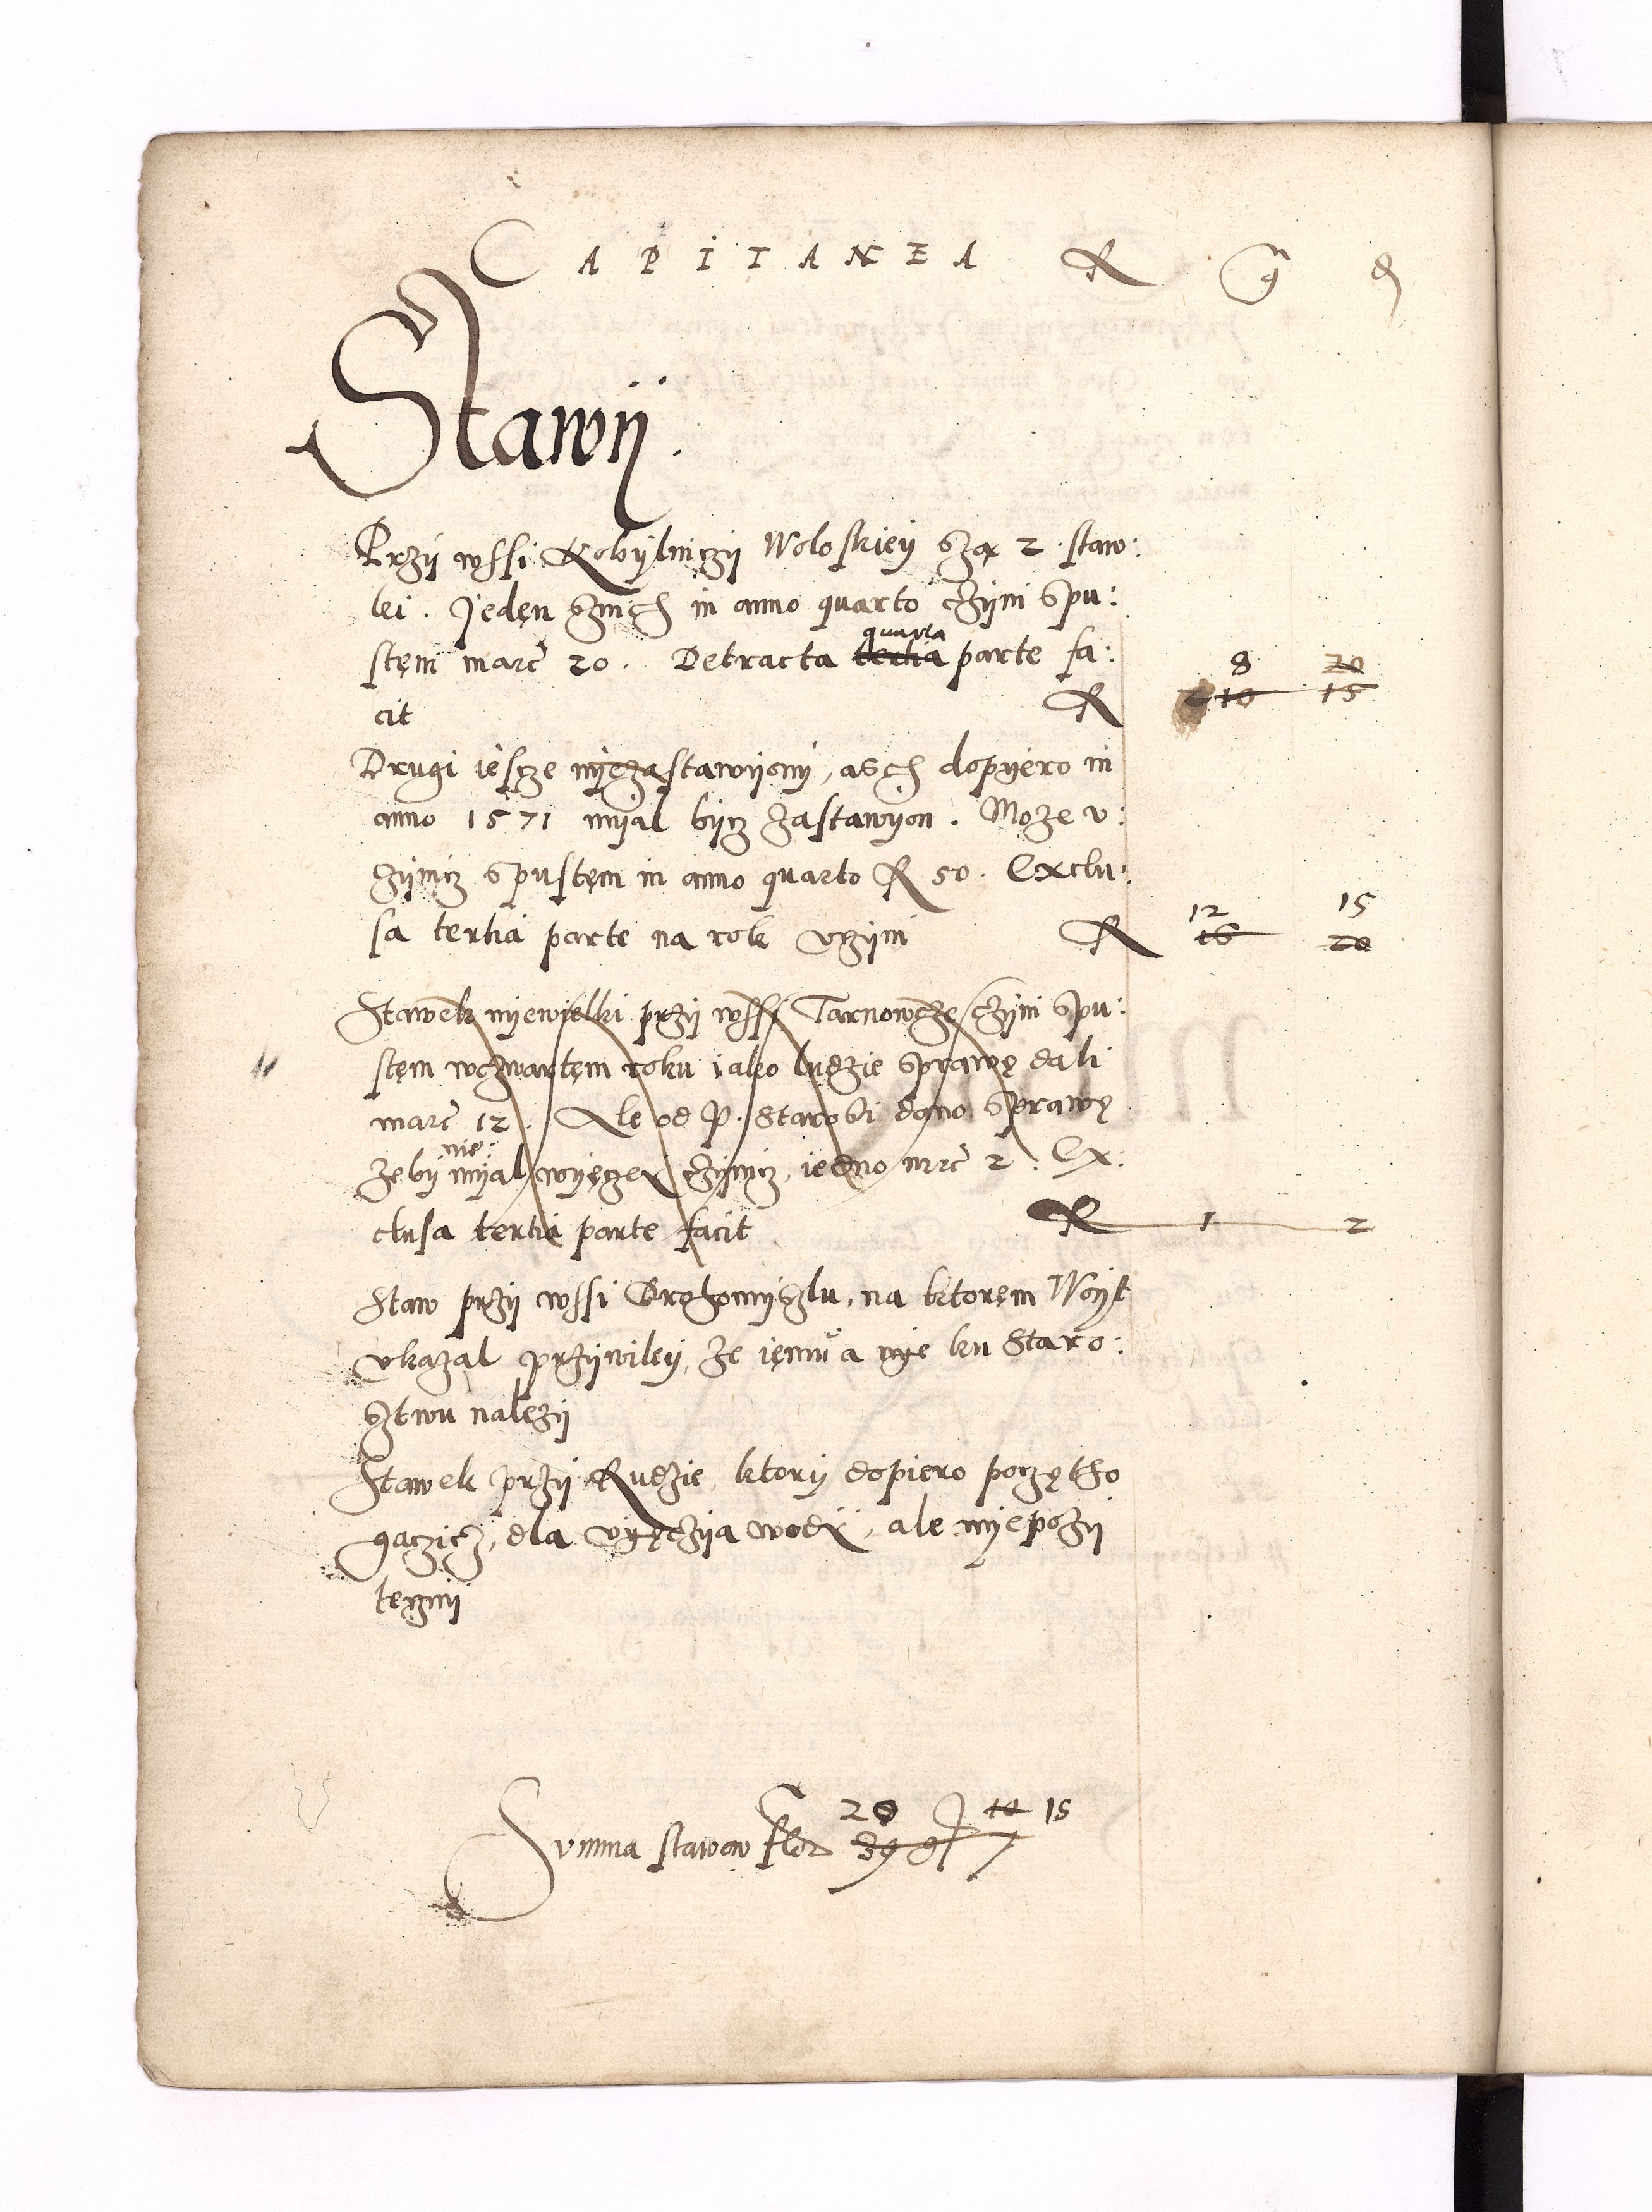 CAPITANEA R g d
Stawÿ.
Przÿ wssi Kobÿlniczÿ Woloskieÿ sza 2. staw:
ki. Jeden sznich in anno quarto czÿni spu:
stem marc 20. Detracta tertia quarta parte fa:
cit R 10 8 15 20
Drugi iescze niezastawÿonÿ, asch dopÿero in
anno 1571 mÿal bÿcz zastawÿon. Moze v:
czÿnicz spustem in anno quarto R 50. Exclu:
sa tertia parte na rok vczÿni R 16 12 20 15
Stawek nÿewielki przÿ wssi Tarnowcze czÿni spu:
stem wczwartem roku iako ludzie sprawę dali
marc 12. Ale od P. Starosti dano sprawę
zebÿ nie mÿal wÿęczeÿ czÿnicz, iedno mrc 2. Ex:
clusa tertia parte facit R 1 2
Staw przÿ wssi Drohomÿszlu, na ktorem Woÿt
vkazal przÿwileÿ, ze iemu a nÿe ku Staro:
sztwu nalezÿ
Stawek przÿ Rudzie, ktorÿ dopiero poczętho
gaczicz, dla vÿęczÿa wodÿ, ale nÿepozÿ
tecznÿ
Summa stawow flor 39 7 20 10 15